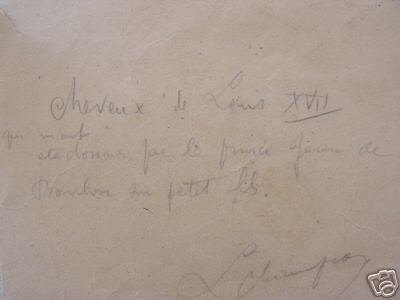 Cheveux de Louis XVII
qui m'ont
été donnés par le prince de
Bourbon son petit fils.